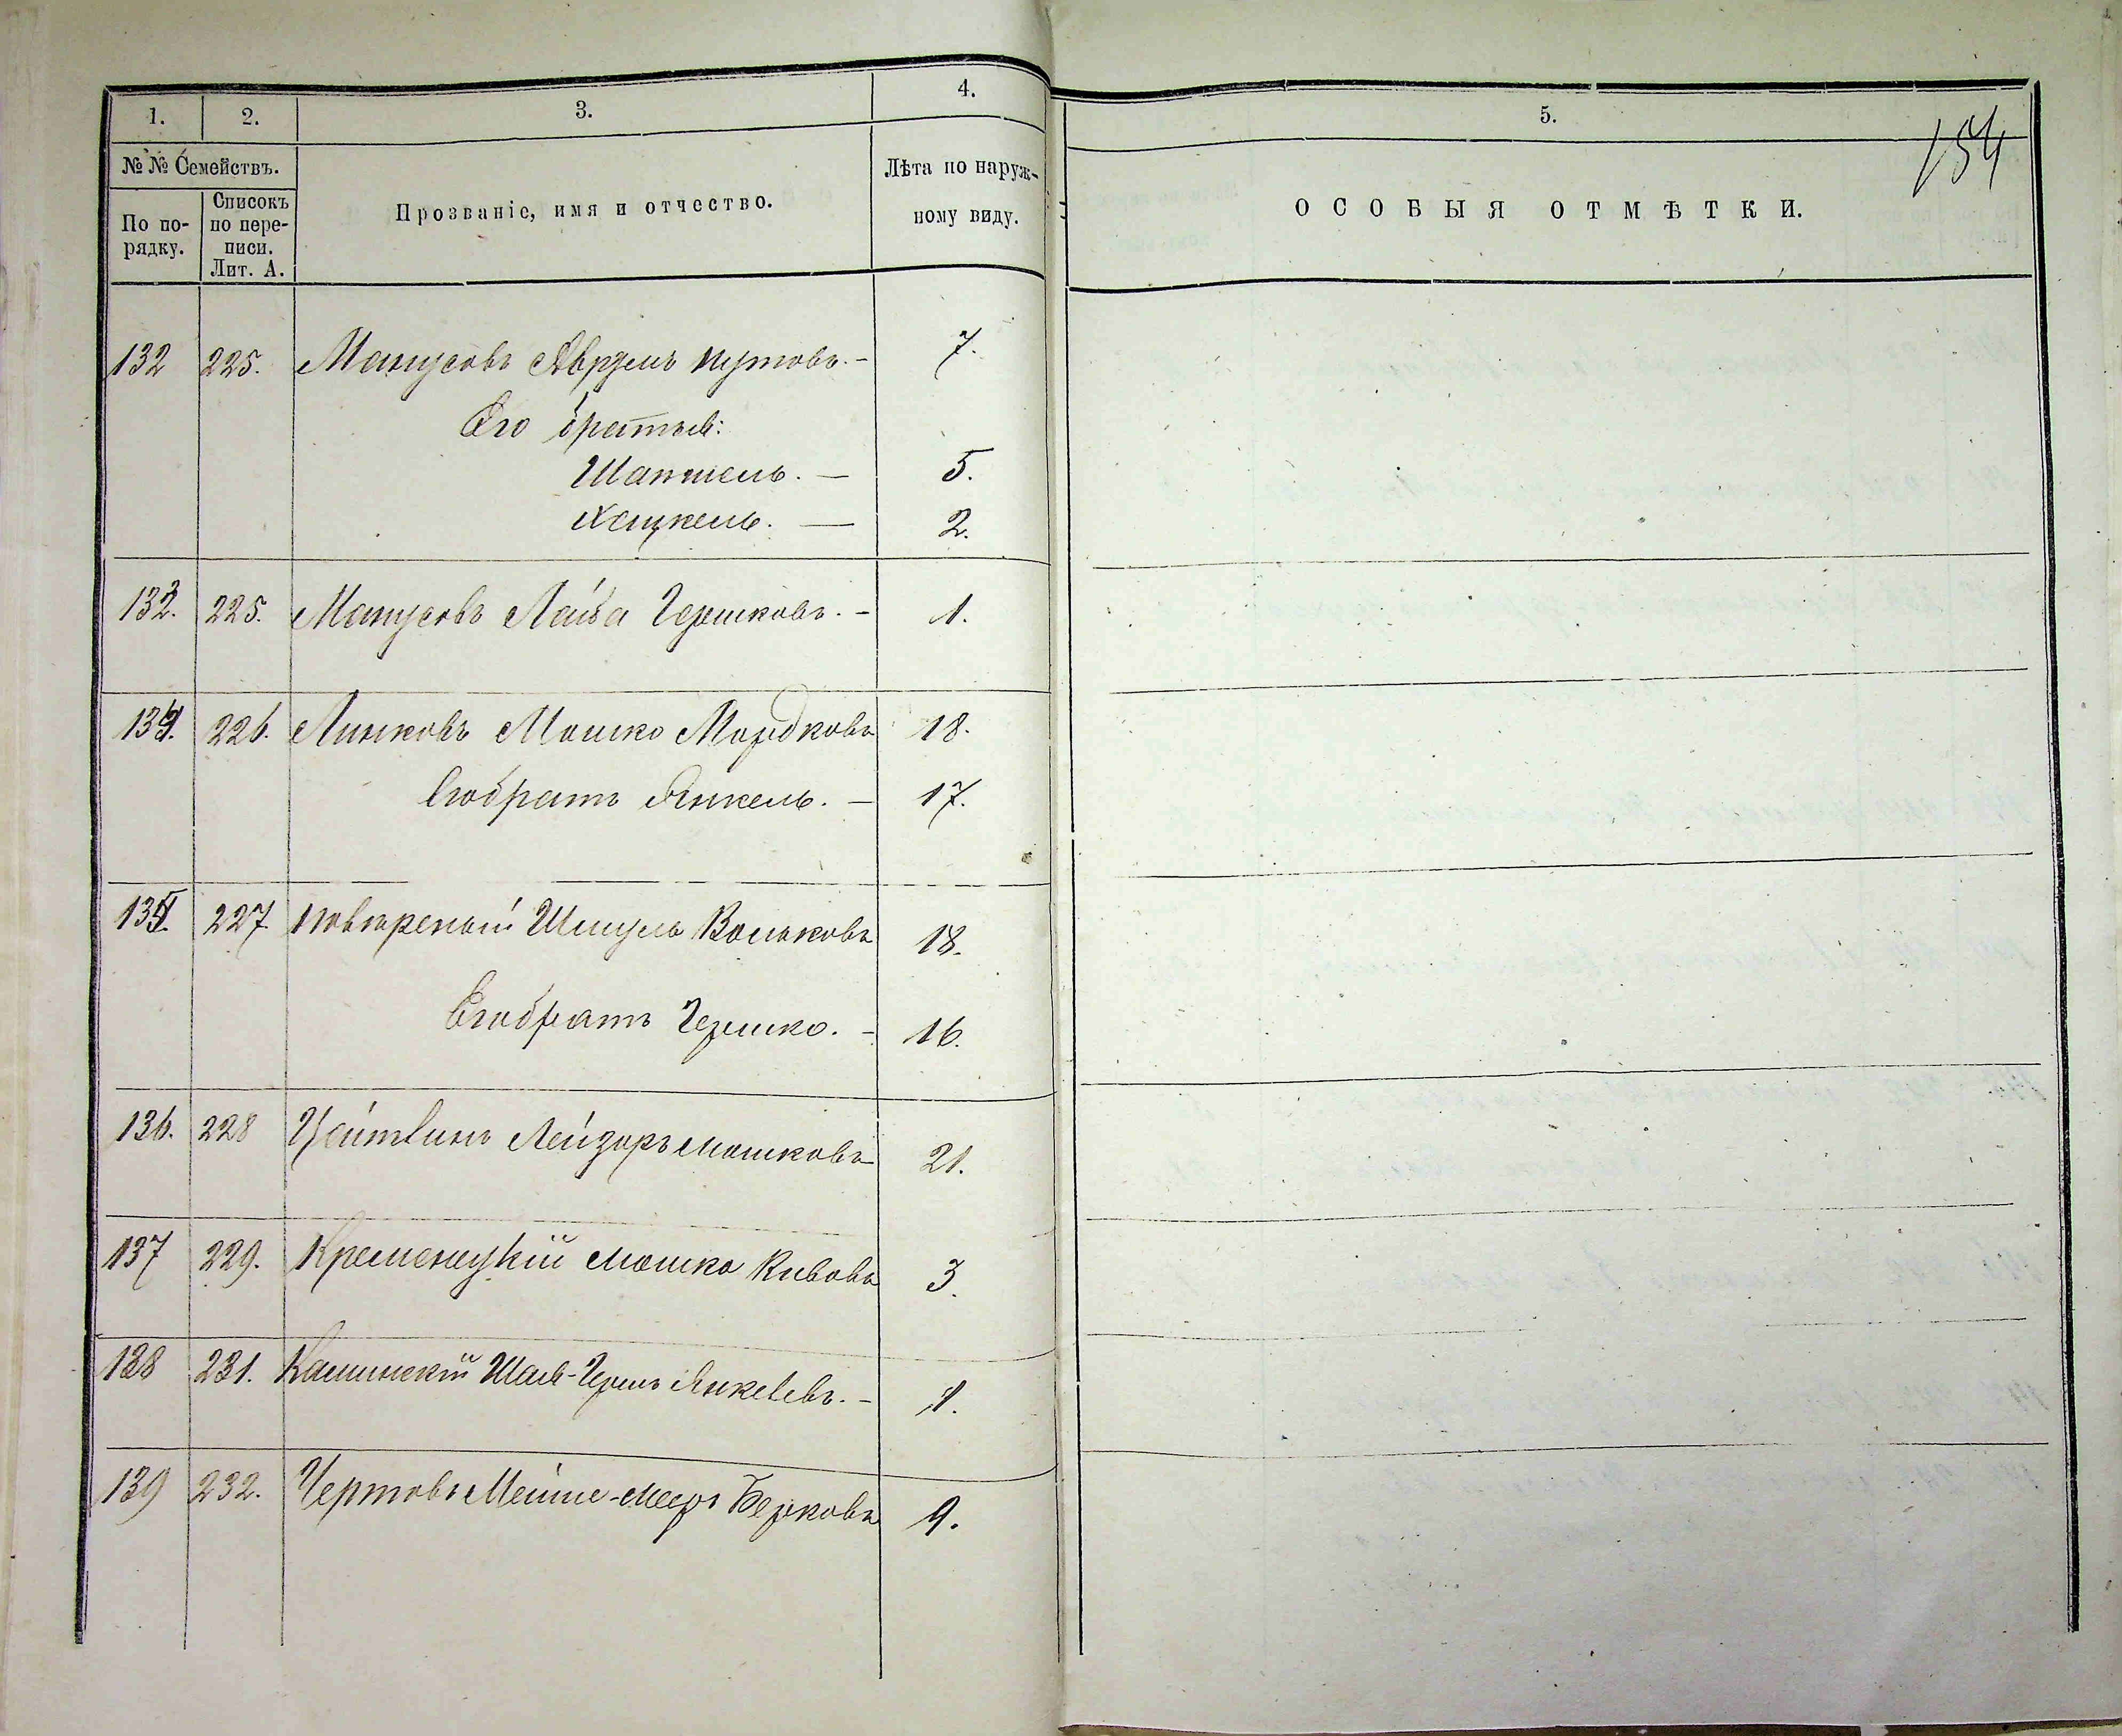 1. 2. 3. 4. 5.
154
№ № Семействъ.
По по-
рядку.
Списокъ
по пере-
писи.
Лит. А.
Прозваніе, имя и отчество.
Лѣта по наруж-
ному виду.
ОСОБЫЯ ОТМѢТКИ.
132 225. Манусовъ Аврумъ Нутовъ. — 7.
Его братья:
Шапшель. — 5.
Хацкель. — 2.
133. 225. Манусовъ Лейба Гершковъ. — 1.
134. 226. Линковъ Мошко Мордковъ 18.
Его братъ Янкель. — 17.
135. 227. Шмуль Вольковъ 18.
Его братъ Гершко. — 16.
136. 228 Цейтлинъ Лейзоръ Мошковъ 21.
137 229. Кременецкій Мошко Кивовъ 3.
138 231. Каминскій Янкелевъ. — 1.
139 232. Чертовъ Мейше-Мееръ Берковъ 9.